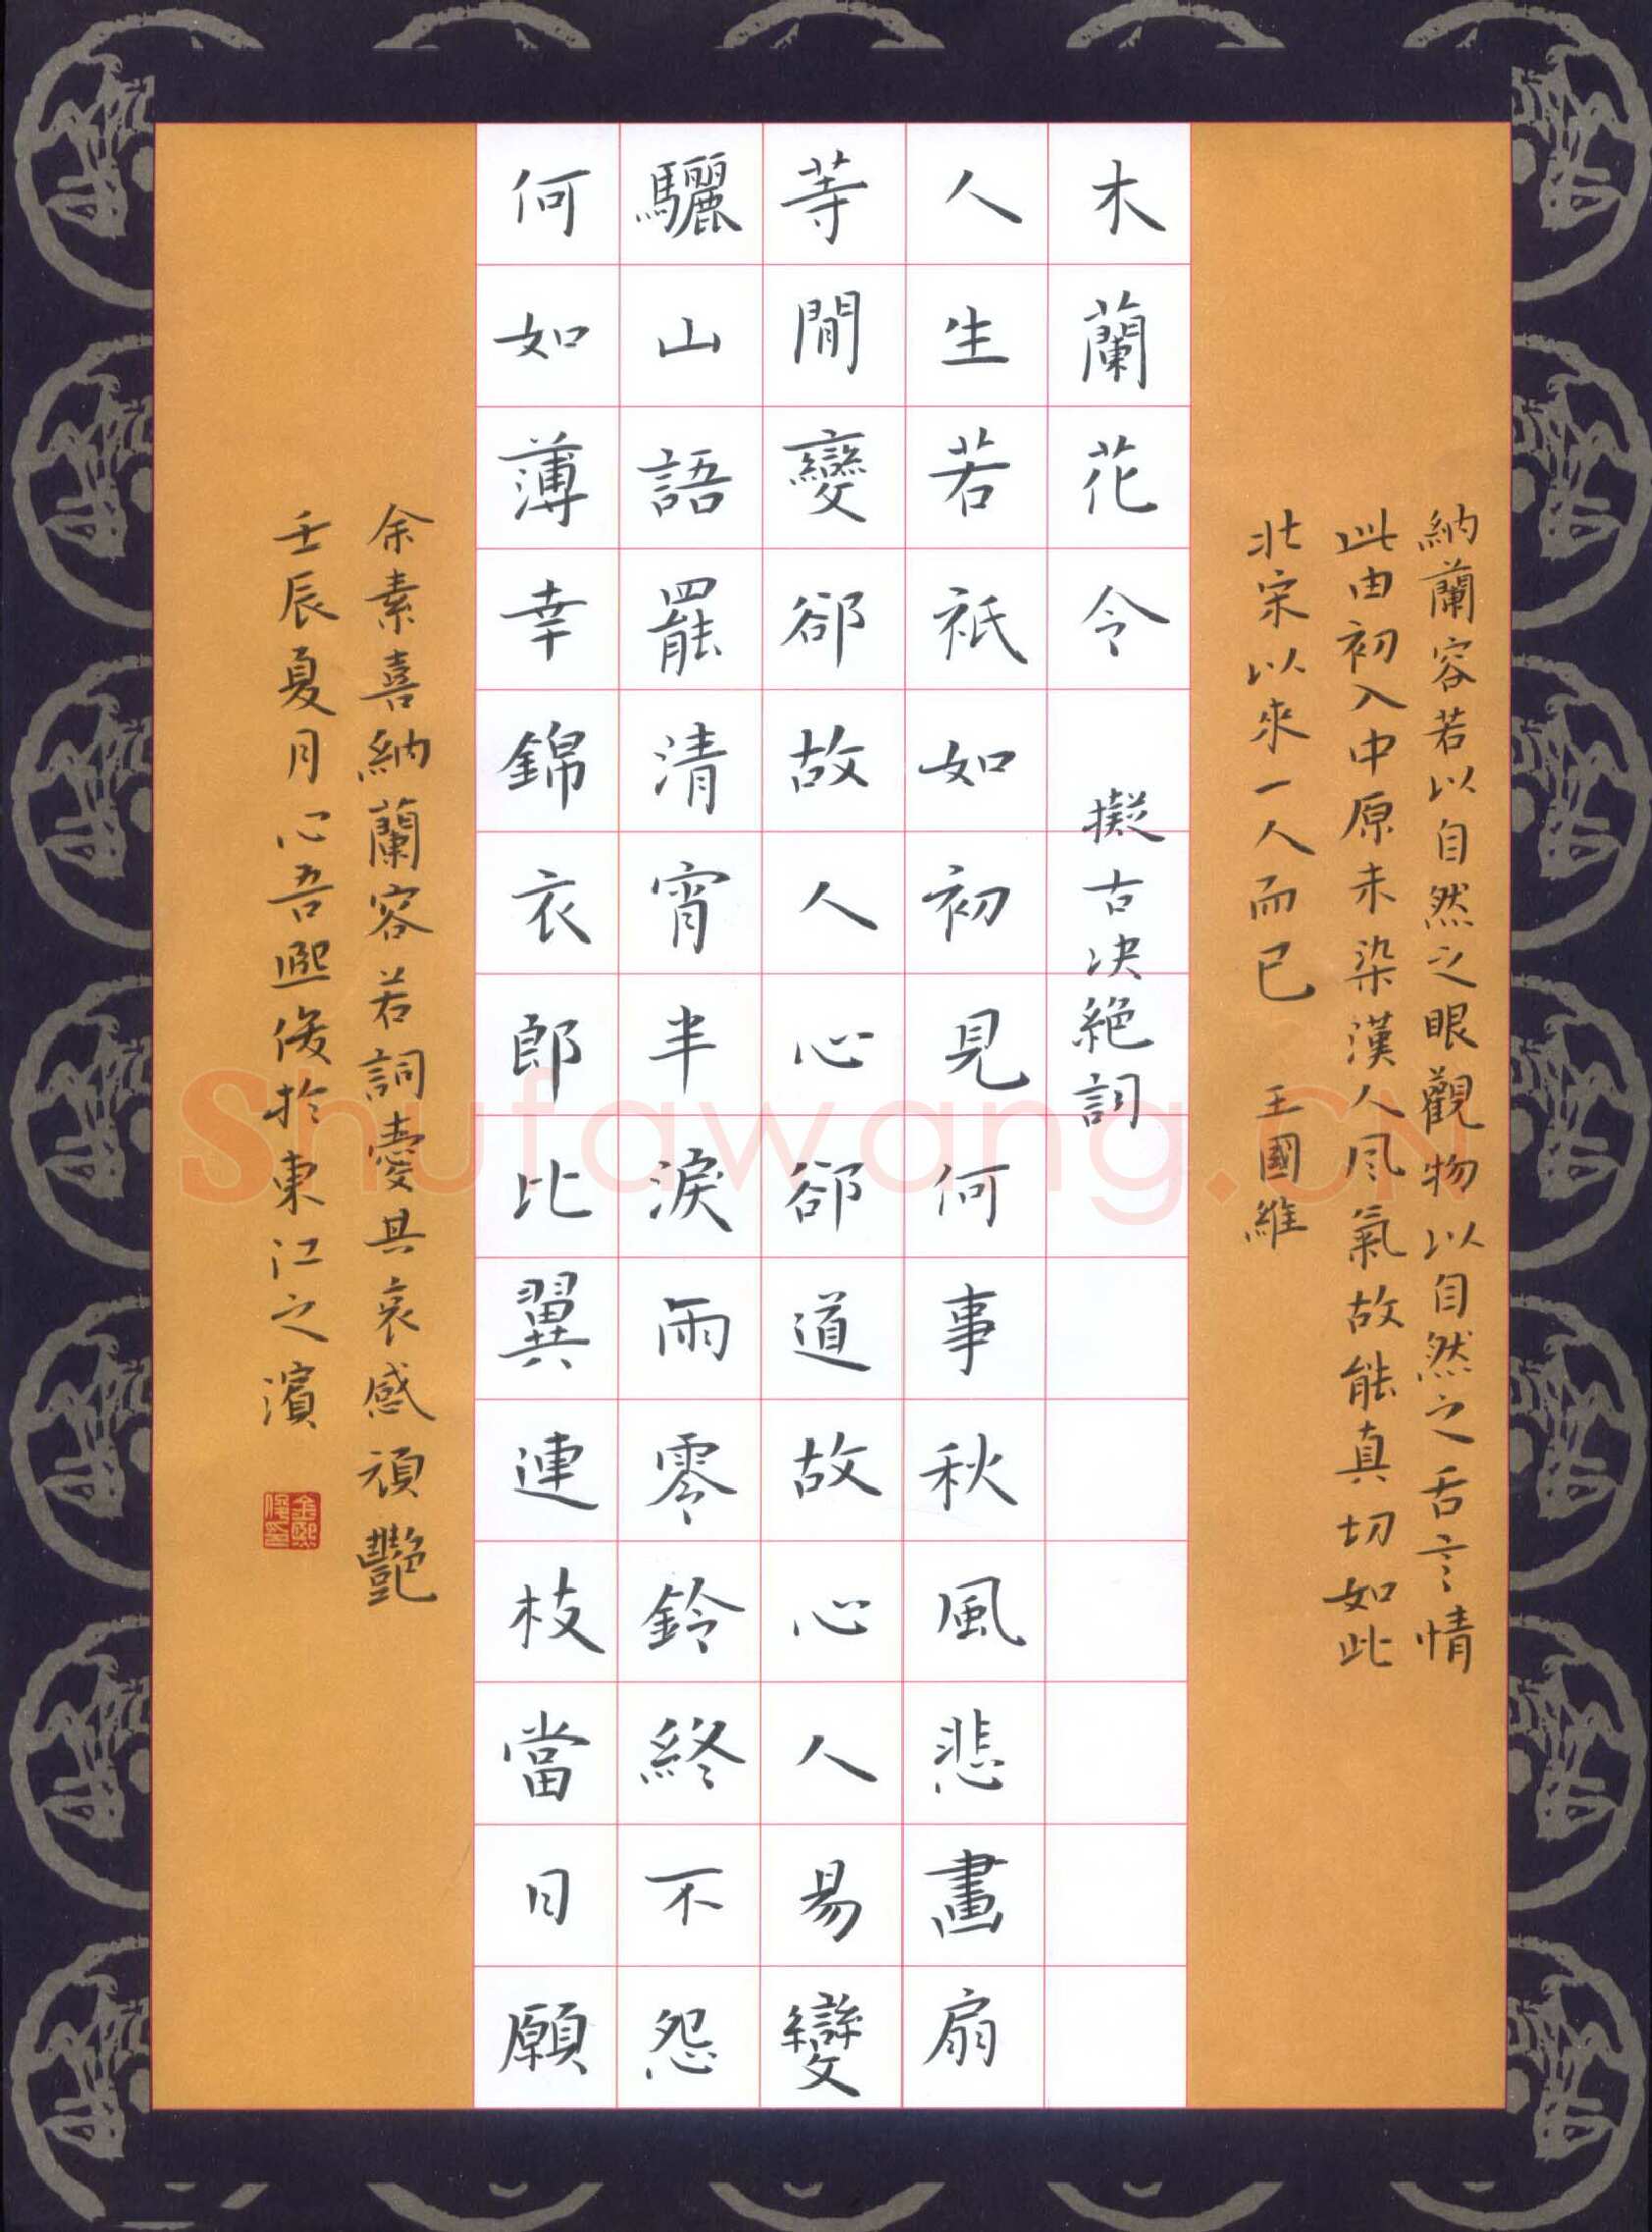 納蘭容若以自然之眼觀物以自然之舌言情
此由初入中原未染漢人风氣故能真切如此
北宋以來一人而已 王國維
木蘭花令 擬古决絕詞
人生若祇如初見何事秋風悲畫扇
等閒變郤故人心郤道故心人易變
驪山語罷清宵半淚雨零鈴終不怨
何如薄幸錦衣郎比翼連枝當日願
余素喜納蘭容若詞愛其哀感頑艷
壬辰夏月心吾熙俊於東江之濱
金熙俊印
Shufawang.CN